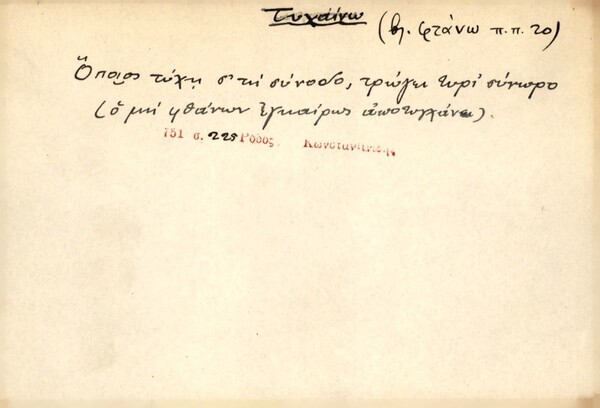 Τυχαίνω (βλ. φτάνω π.π. το)
Ὅποιος τύχῃ σ' τὴ σύνοδο, τρώγει τυρὶ σύνωρο
(ὁ μὴ φθάνων ἐγκαίρως ἀποτυγχάνει).
751 σ. 225 Ρόδος. Κωνσταντινίδης